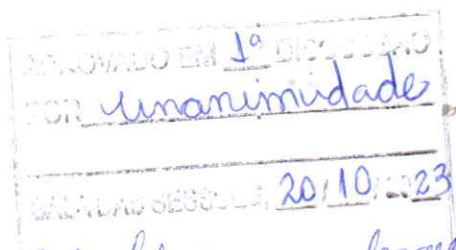 APROVADO EM 1ª DISCUSSÃO
POR unanimidade
SALA DAS SESSÕES 20/10/23